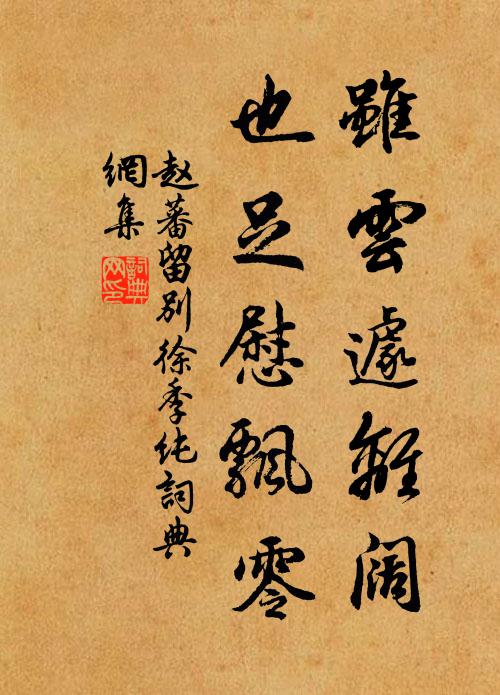 雖雲遽離闊
也足慰飄零
赵蕃留别徐季纯詞典
網集
詞典
网印